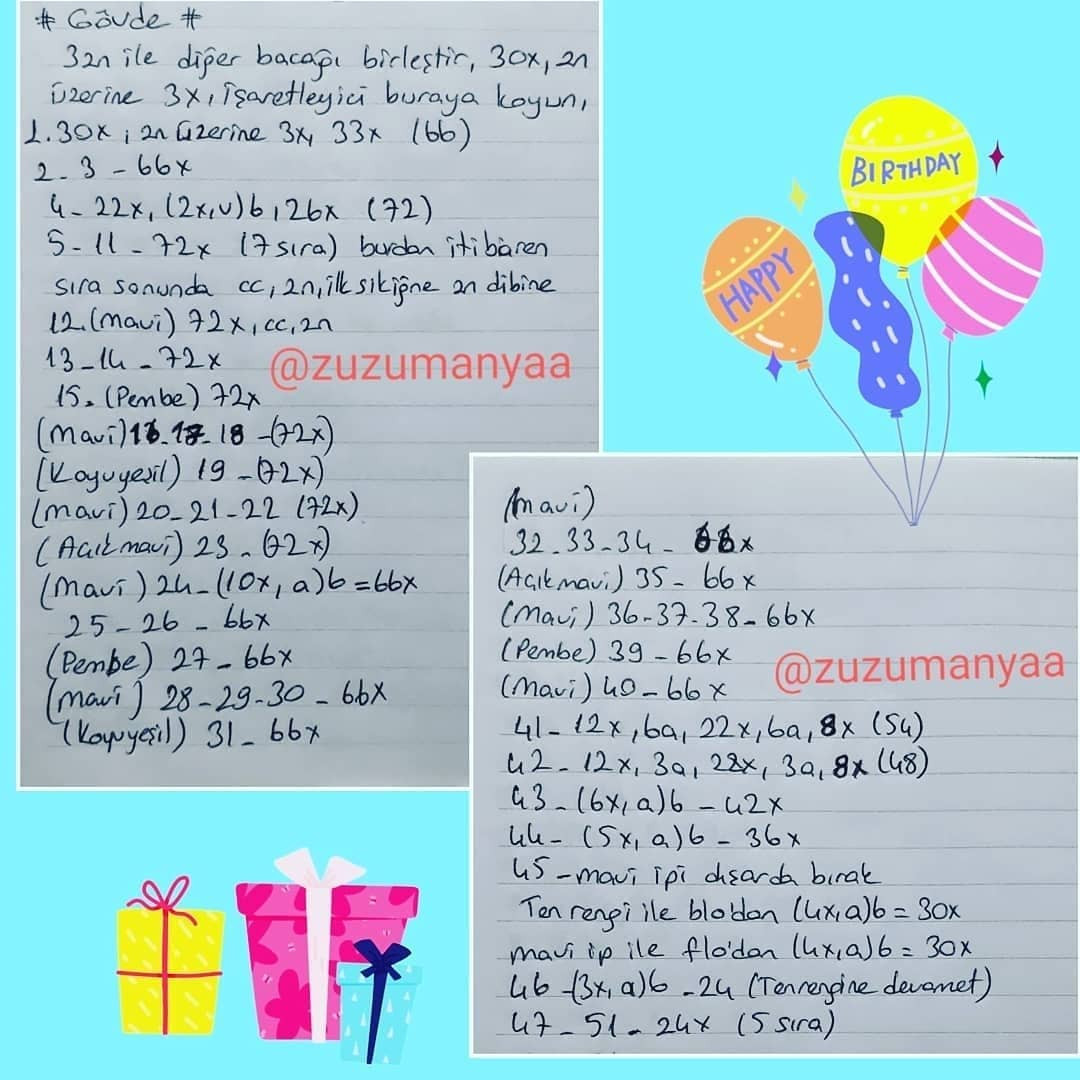 # Gövde #
3zn ile diğer bacağı birleştir, 30x, zn
üzerine 3x, işaretleyici buraya koyun,
1. 30x, zn üzerine 3x, 33x (66)
2-3-66x
4-22x, (2x,v)6, 26x (72)
5-11-72x (7sıra) burdan itibaren
sıra sonunda cc, zn, ilk sık iğne zn dibine
12.(mavi) 72x, cc, zn
13-14-72x
15. (Pembe) 72x
(mavi) 16-17-18-(72x)
(Koyuyeşil) 19-(72x)
(mavi) 20-21-22 (72x)
(Açık mavi) 23-(72x)
(Mavi) 24-(10x, a)6=66x
25-26-66x
(Pembe) 27-66x
(mavi) 28-29-30-66x
(Koyuyeşil) 31-66x
@zuzumanyaa
(mavi)
32-33-34-66x
(Açık mavi) 35-66x
(mavi) 36-37-38-66x
(Pembe) 39-66x
(Mavi) 40-66x
41-12x, 6a, 22x, 6a, 8x (54)
42-12x, 3a, 22x, 3a, 8x (48)
43-(6x, a)6-42x
44-(5x, a)6-36x
45-mavi ipi dışarda bırak
Ten rengi ile blo'dan (4x,a)6=30x
mavi ip ile flo'dan (4x,a)6=30x
46-(3x, a)6-24 (Ten rengine devamet)
47-51-24x (5 sıra)
@zuzumanyaa
HAPPY
BIRTHDAY